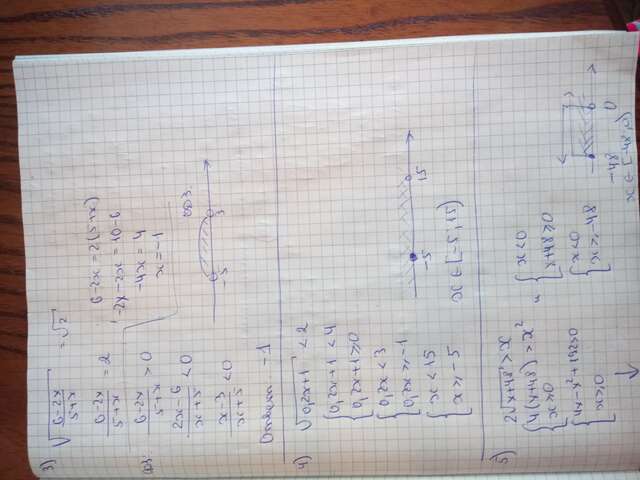 3) √((6-2x)/(5+x)) = √2
(6-2x)/(5+x) = 2
6-2x = 2(5+x)
-2x-2x = 10-6
-4x = 4
x = -1
ОДЗ: (6-2x)/(5+x) > 0
(2x-6)/(x+5) < 0
(x-3)/(x+5) < 0
-5 3 ОДЗ.
Ответ: -1
4) √(0,2x+1) < 2
{0,2x+1 < 4
{0,2x+1 ≥ 0
{0,2x < 3
{0,2x ≥ -1
{x < 15
{x ≥ -5
-5 15
x ∈ [-5; 15)
5) 2√(x+48) > x
{4(x+48) > x²
{x ≥ 0
и {x < 0
{x+48 ≥ 0
{4x-x²+192>0
{x ≥ 0
{x < 0
{x ≥ -48
-48 0
x ∈ [-48; 0)